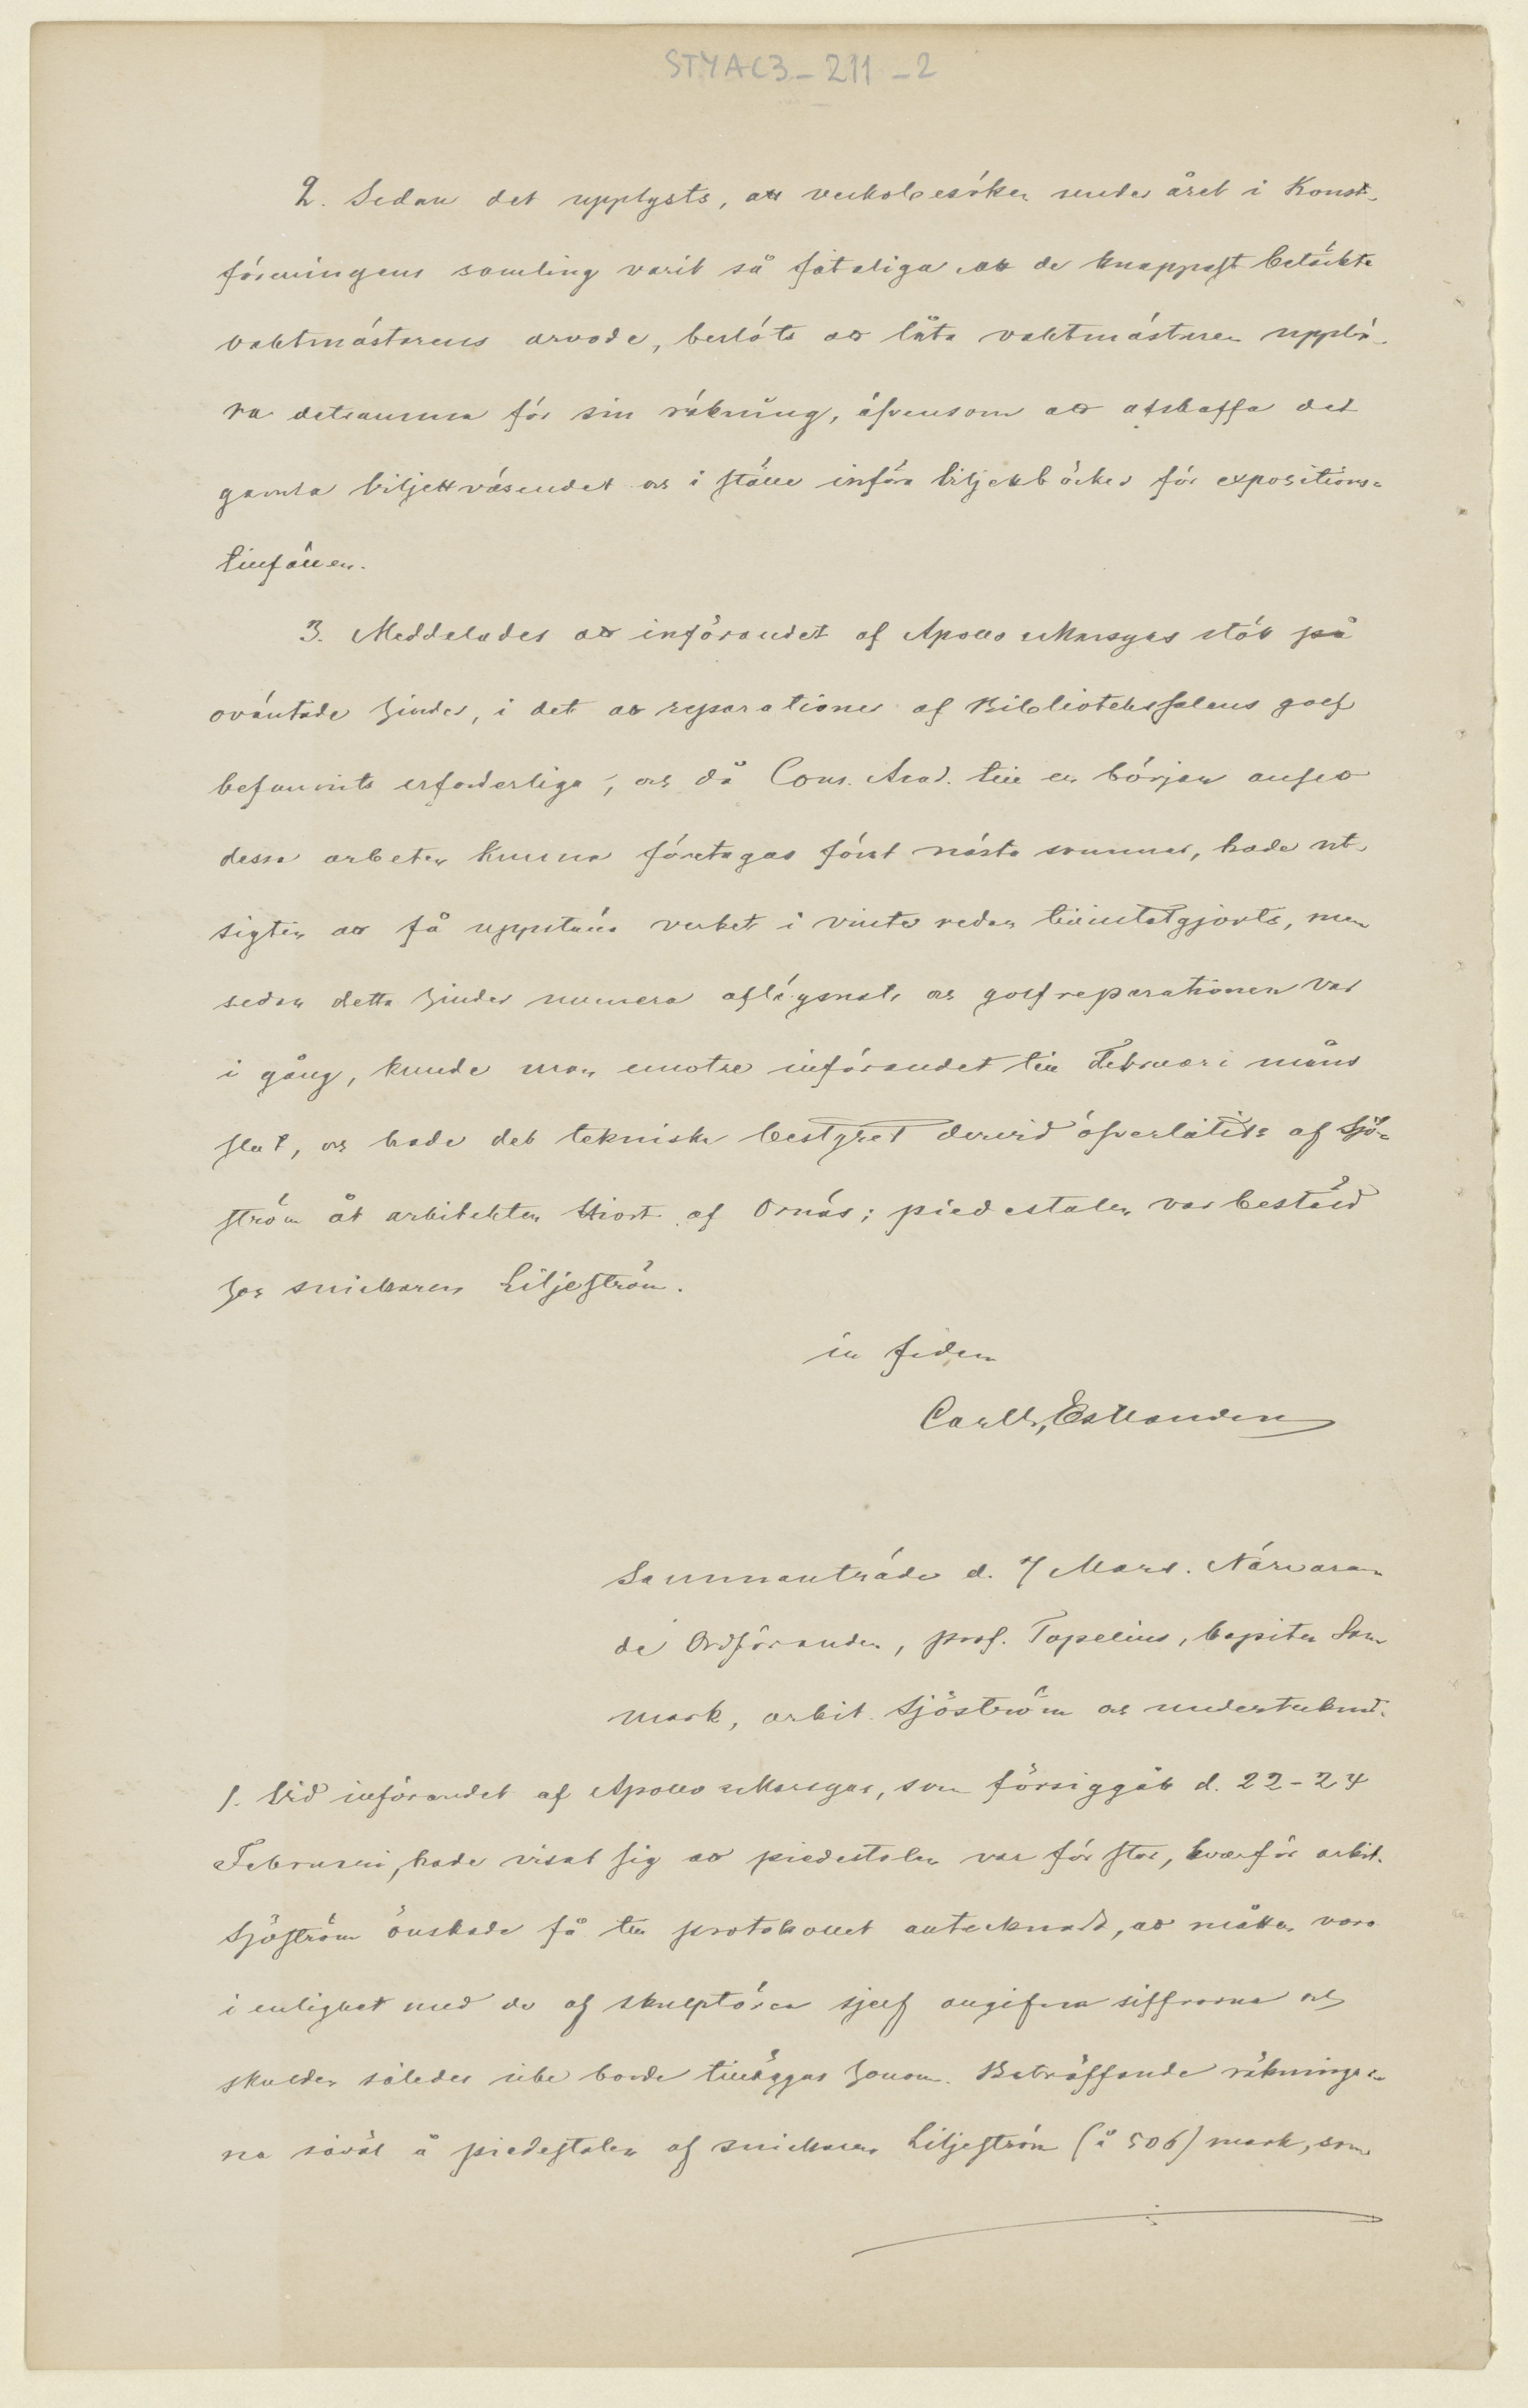 STYAC3-211-2
2. Sedan det upplysts, att veckobesöken under året i Konst-
föreningens samling varit så fåtaliga att de knappast betäckte
vaktmästarens arvode, beslöts att låta vaktmästaren uppbä-
ra detsamma för sin räkning, äfvensom att afskaffa det
gamla biljettväsendet och i stället införa biljettböcker för expositions-
tillfällen.
3. Meddelades att införandet af Apollo & Marsyas stött på
oväntade hinder, i det att reparationer af Bibliotekssalens golf
befunnits erforderliga, och då Cons. Acad. till en början ansåg
dessa arbeten kunna företagas först nästa sommar, hade ut-
sigten att få uppställa verket i vinter redan tillintetgjorts, men
sedan detta hinder numera aflägsnats och golfreparationen var
i gång, kunde man emotse införandet till Februari månads
slut, och hade det tekniska bestyret dervid öfverlåtits af Sjö-
ström åt arkitekten Hjort af Ornäs; piedestalen var beställd
hos snickaren Liljeström.
in fidem
Carl G. Estlander
Sammanträde d. 7 Mars. Närvaran-
de Ordföranden, prof. Topelius, kapiten Som
mark, arkit. Sjöström och undertecknad.
1. Vid införandet af Apollo & Marsyas, som försiggått d. 22-24
Februari, hade visat sig att piedestalen var för stor, hvarför arkit.
Sjöström önskade få till protokollet antecknadt, att måtten voro
i enlighet med de af skulptören sjelf angifna siffrorna och
skulden således icke borde tilläggas honom. Beträffande räkningar-
na såväl å piedestalen af snickaren Liljeström (à 506) mark, som